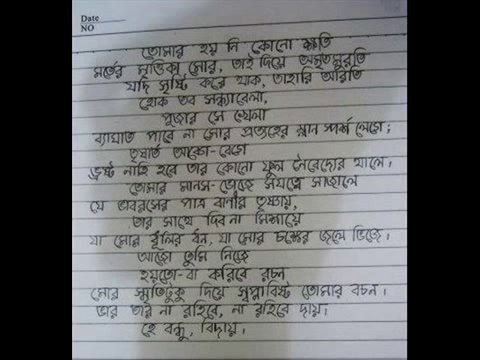 Date
NO
তোমার হয় নি কোনো ক্ষতি
মর্তের মৃত্তিকা মোর, তাই দিয়ে অমৃতমুরতি
যদি সৃষ্টি করে থাক, তাহারি আরতি
হোক তব সন্ধ্যাবেলা,
পূজার সে খেলা
ব্যাঘাত পাবে না মোর প্রত্যহের ম্লান স্পর্শ লেগে;
তৃষার্ত আবেগ-বেগে
ভ্রষ্ট নাহি হবে তার কোনো ফুল নৈবেদ্যের থালে।
তোমার মানস-ভোজে সযত্নে সাজালে
যে ভাবরসের পাত্র বাণীর তৃষায়,
তার সাথে দিব না মিশায়ে
যা মোর ধূলির ধন, যা মোর চক্ষের জলে ভিজে।
আজো তুমি নিজে
হয়তো-বা করিবে রচন
মোর স্মৃতিটুকু দিয়ে স্বপ্নাবিষ্ট তোমার বচন।
ভার তার না রহিবে, না রহিবে দায়।
হে বন্ধু, বিদায়।